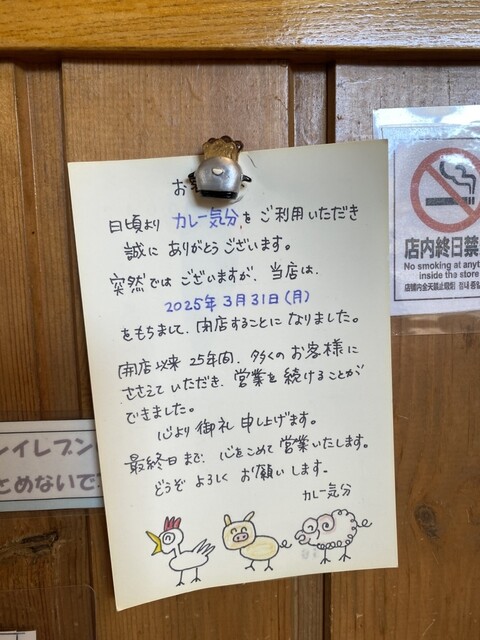 お
日頃より カレー気分をご利用いただき
誠に ありがとうございます。
突然では ございますが、当店は、
2025年3月31日(月)
をもちまして、閉店することに なりました。
開店以来 25年間、多くの お客様に
ささえて いただき、営業を 続けることが
できました。
心より 御礼 申し上げます。
最終日まで、心をこめて 営業いたします。
どうぞ よろしく お願いします。
カレー気分
店内終日禁
No smoking at any
inside the store
店铺内全天禁止吸烟
ンイレブン
とめないで